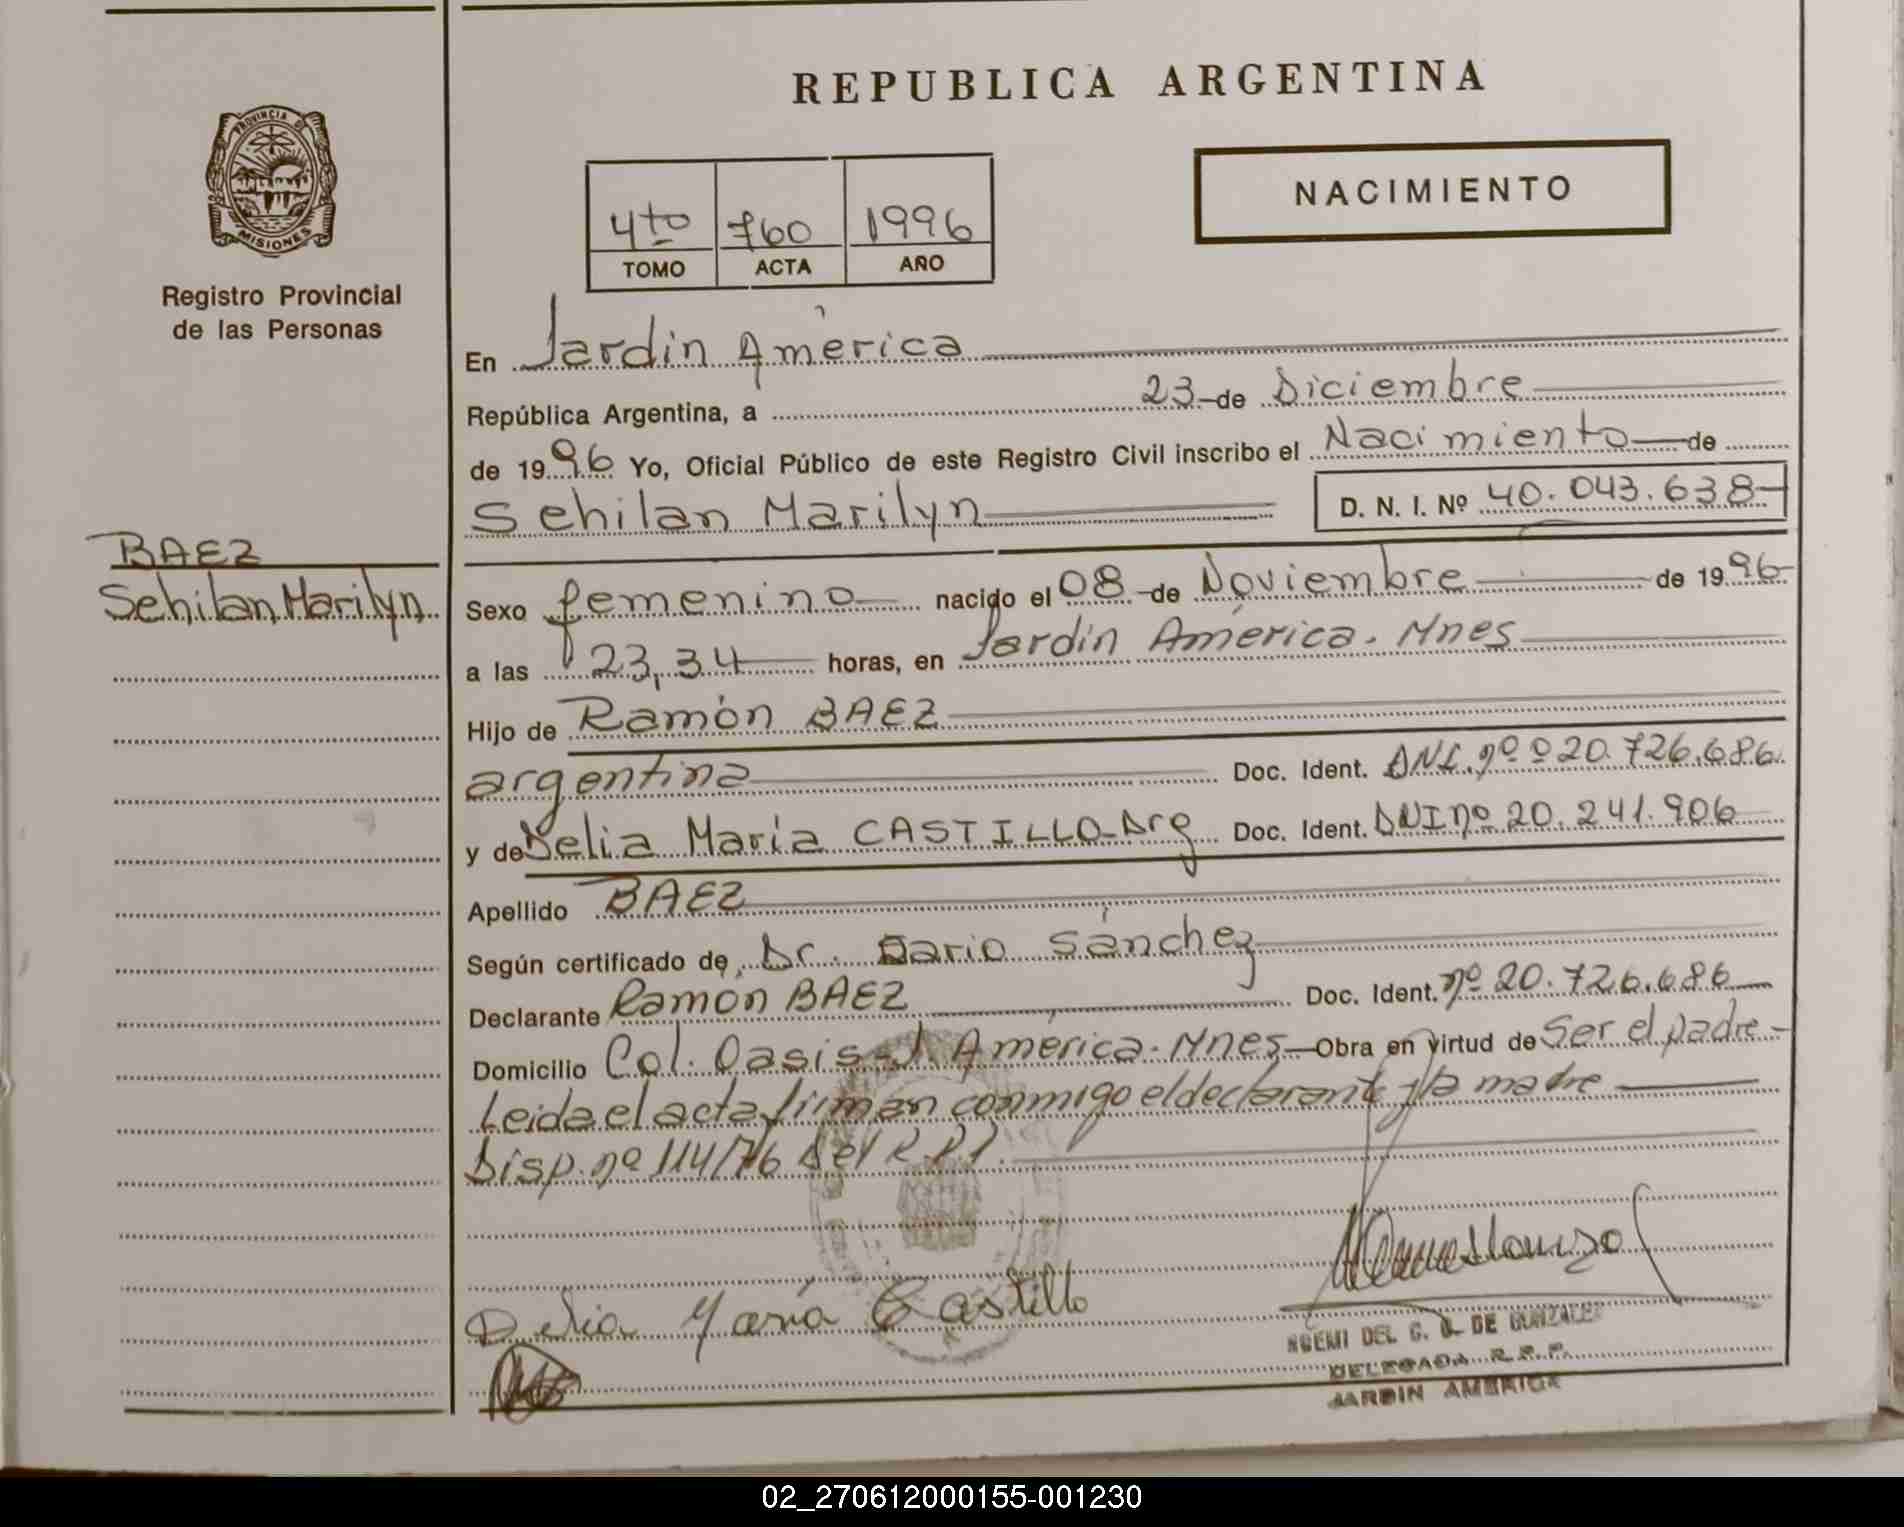 REPUBLICA ARGENTINA
PROVINCIA DE
MISIONES
Registro Provincial
de las Personas
4to 760 1996
TOMO ACTA AÑO
NACIMIENTO
En Jardín América
República Argentina, a 23 de Diciembre
de 1996 Yo, Oficial Público de este Registro Civil inscribo el Nacimiento de
Sehilan Marilyn D. N. I. Nº 40.043.638
BAEZ
Sehilan Marilyn
Sexo femenino nacido el 08 de Noviembre de 1996
a las 23,34 horas, en Jardín América. Mnes
Hijo de Ramón BAEZ
argentina Doc. Ident. DNI. nº 20.726.686
y de Delia María CASTILLO-Arg Doc. Ident. DNI nº 20.241.906
Apellido BAEZ
Según certificado de Dr. Dario Sánchez
Declarante Ramón BAEZ Doc. Ident. nº 20.726.686
Domicilio Col. Oasis-J. América-Mnes Obra en virtud de Ser el padre.-
Leida el acta firman conmigo el declarante y la madre
Disp. nº 114/76 del R.P.P.
Delia María Castillo
NOEMI DEL C. DE GONZALEZ
DELEGADA R.P.P.
JARDIN AMERICA
02_270612000155-001230